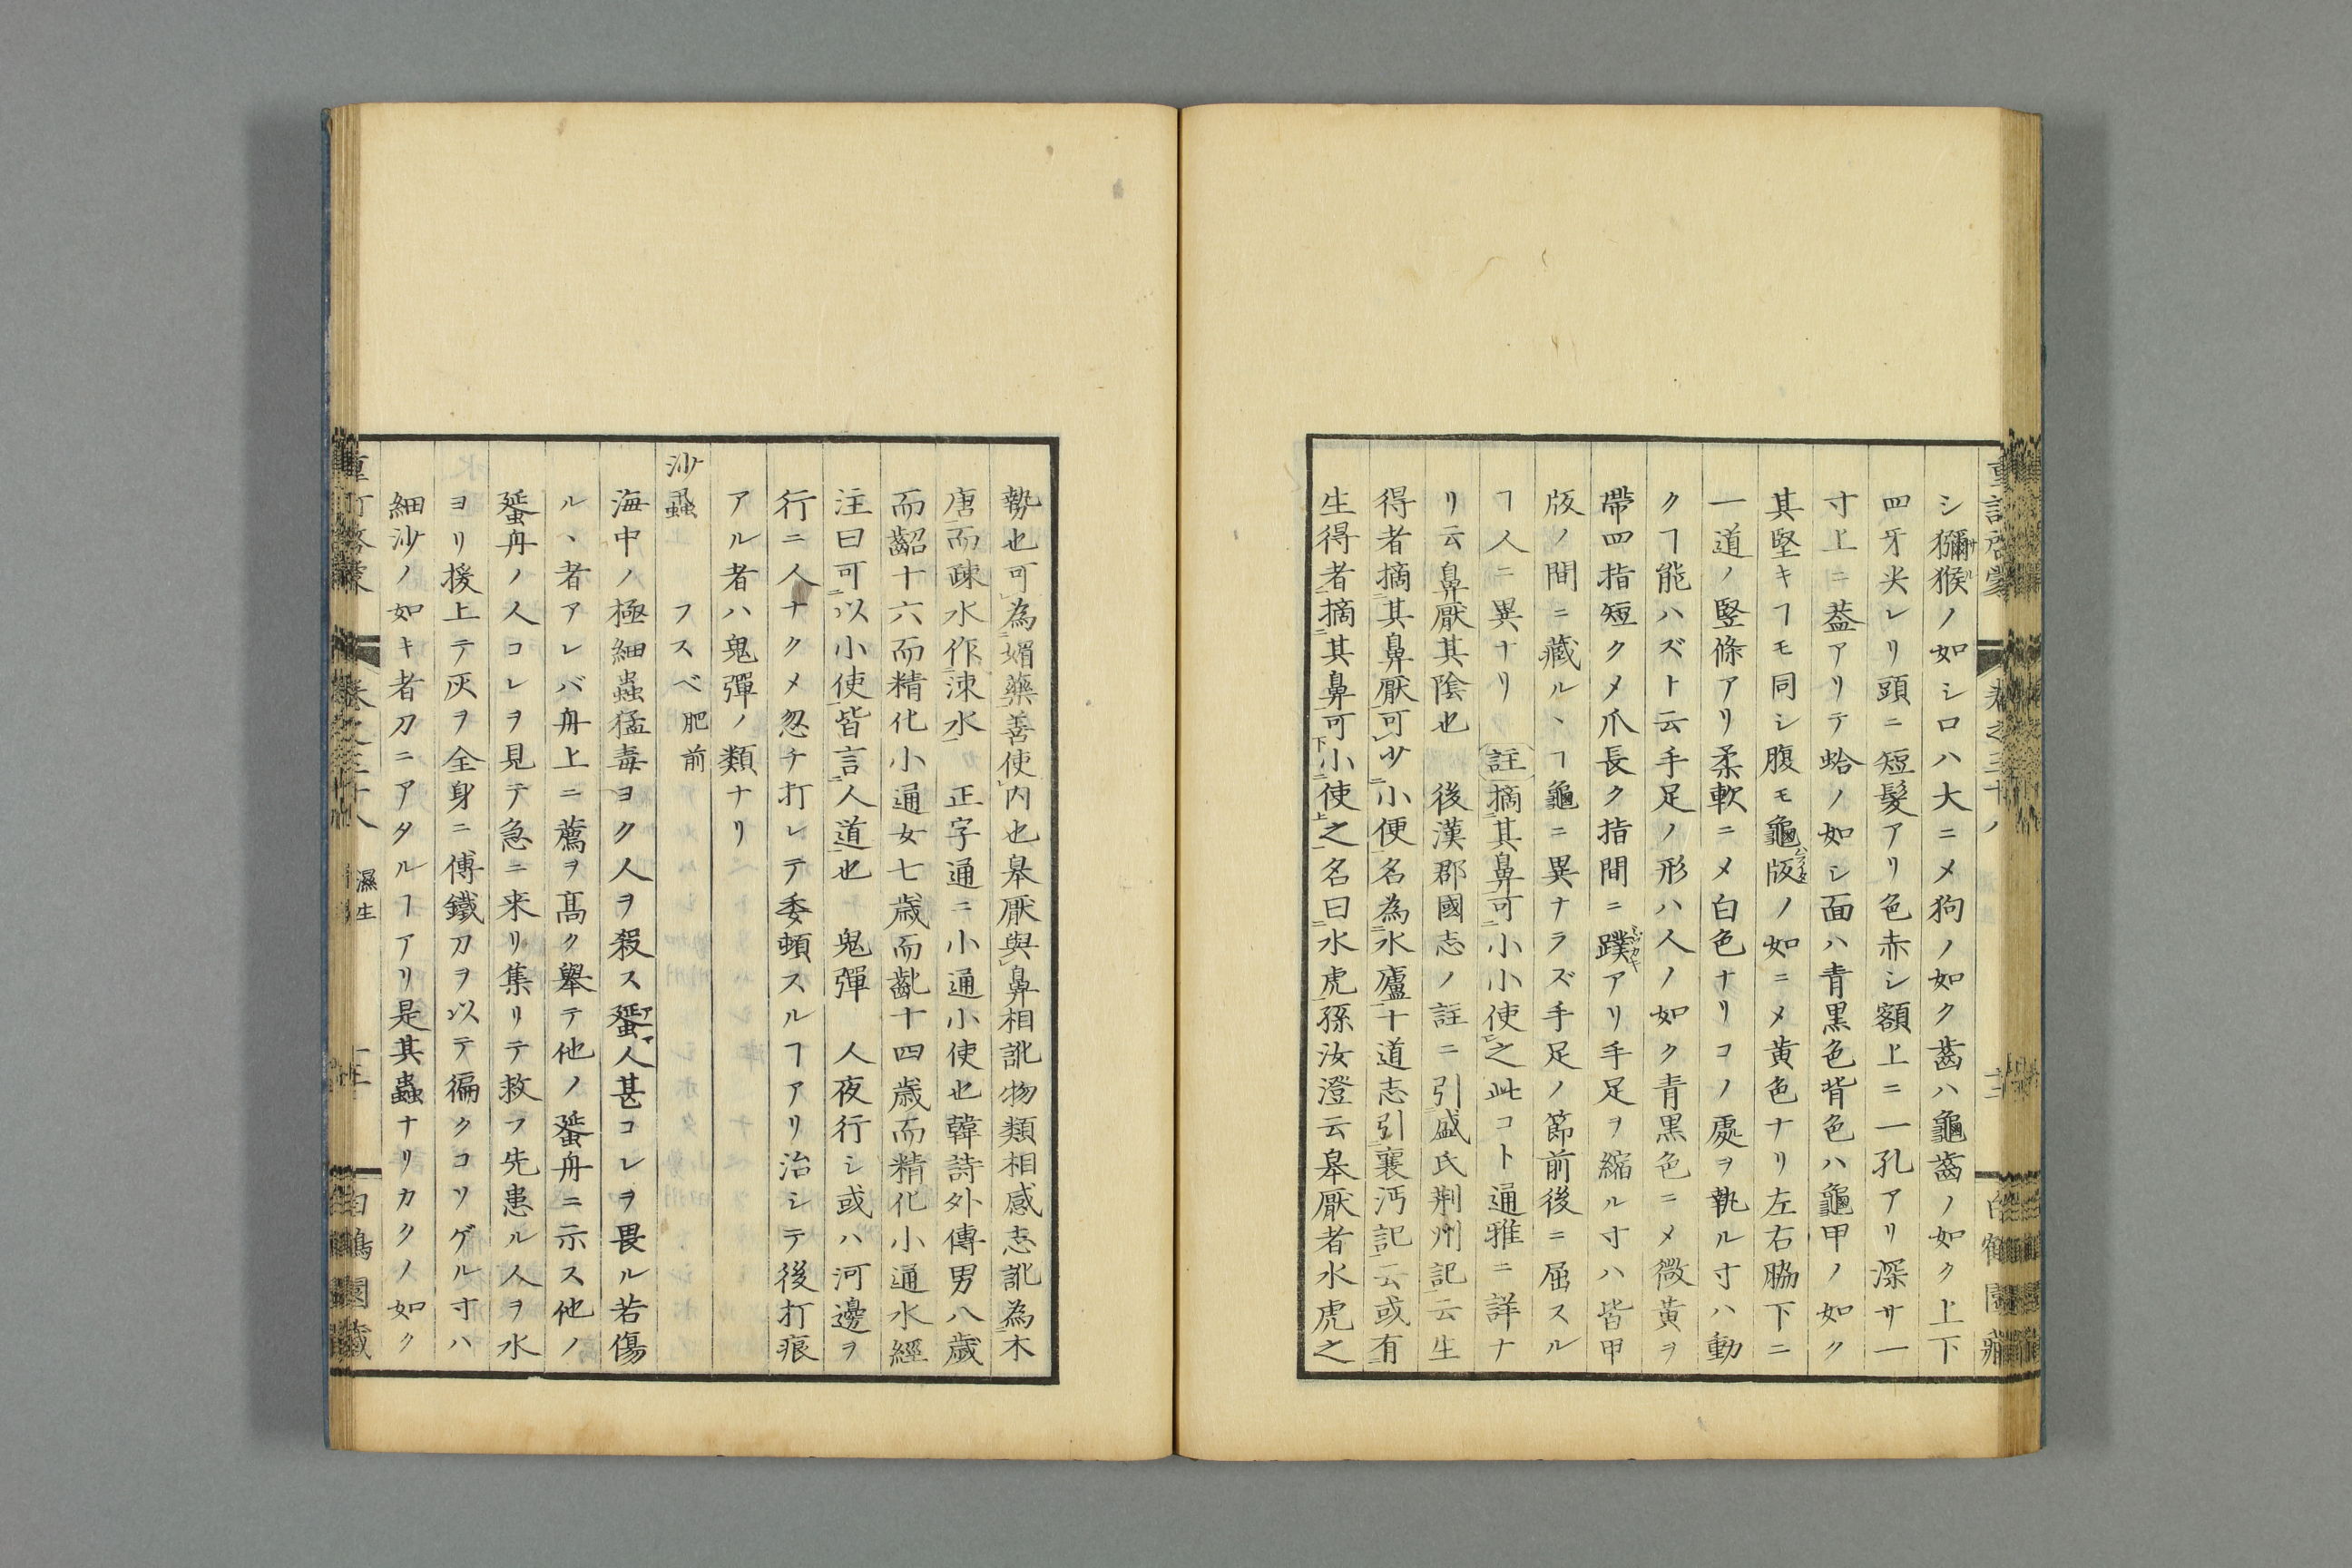 シ獼猴ノ如シロハ大ニメ狗ノ如ク齒ハ龜齒ノ如ク上下
四牙尖レリ頭ニ短髮アリ色赤シ額上ニ一孔アリ深サ一
寸上ニ葢アリテ蛤ノ如シ面ハ青黒色背色ハ龜甲ノ如ク
其堅キヿモ同シ腹モ龜版ノ如ニメ黄色ナリ左右脇下ニ
一道ノ竪條アリ柔軟ニメ白色ナリコノ處ヲ執ル寸ハ動
クヿ能ハズト云手足ノ形ハ人ノ如ク青黒色ニメ微黄ヲ
帶四指短クメ爪長ク指間ニ蹼アリ手足ヲ縮ル寸ハ皆甲
版ノ間ニ藏ル丶ヿ龜ニ異ナラズ手足ノ節前後ニ屈スル
ヿ人ニ異ナリ 註 摘其鼻可小小使之此コト通雅ニ詳ナ
リ云鼻厭其陰也 後漢郡國志ノ註ニ引盛氏荆州記云生
得者摘其鼻厭可少小便名為水廬十道志引襄沔記云或有
生得者摘其鼻可小使之名曰水虎孫汝澄云皋厭者水虎之
勢也可為媚藥善使内也皋厭與鼻相訛物類相感志訛為木
唐而疎水作涑水 正字通ニ小通小使也韓詩外傳男八歳
而齠十六而精化小通女七歳而齔十四歳而精化小通水經
注曰可以小使皆言人道也 鬼彈 人夜行シ或ハ河邊ヲ
行ニ人ナクメ忽チ打レテ委頓スルヿアリ治シテ後打痕
アル者ハ鬼彈ノ類ナリ
沙蝨 フスベ 肥前
海中ノ極細蟲猛毒ヨク人ヲ殺ス蜑人甚コレヲ畏ル若傷
ル丶者アレバ舟上ニ薦ヲ髙ク舉テ他ノ蜑舟ニ示ス他ノ
蜑舟ノ人コレヲ見テ急ニ来リ集リテ救フ先患ル人ヲ水
ヨリ援上テ灰ヲ全身ニ傅鐵刀ヲ以テ徧クコソゲル寸ハ
細沙ノ如キ者刀ニアタルヿアリ是其蟲ナリカクノ如ク